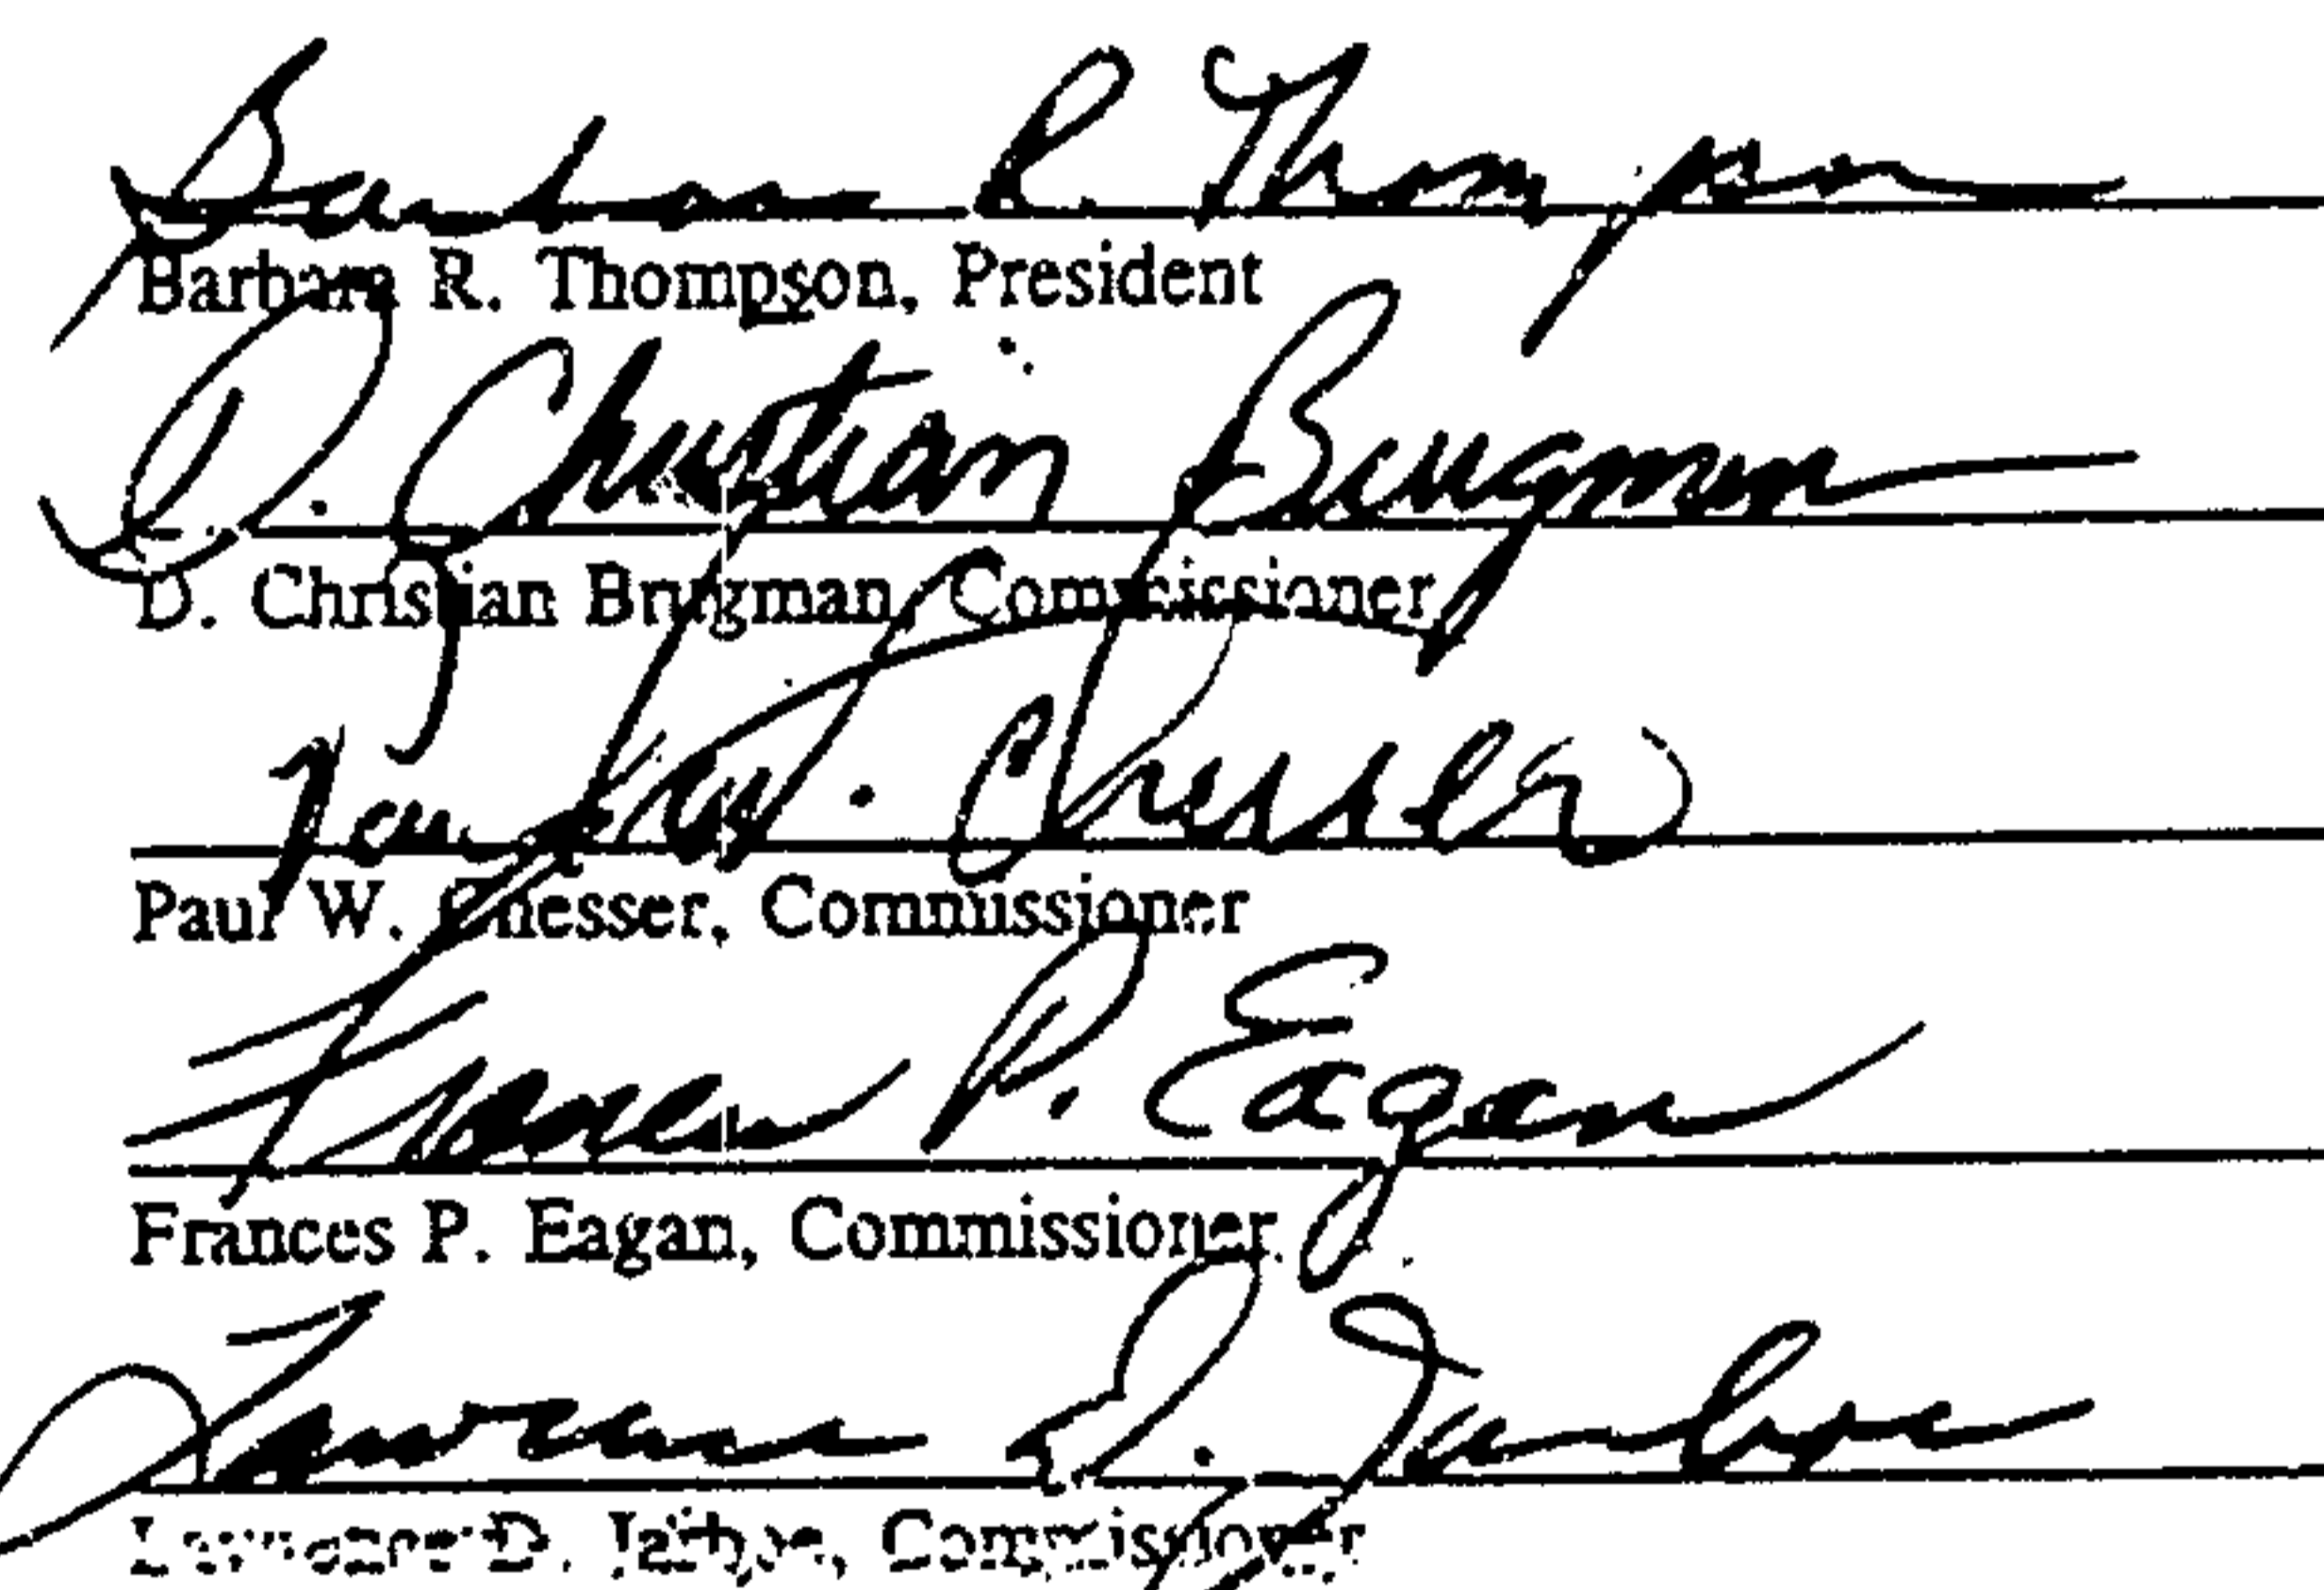 Barbara R. Thompson
Barbara R. Thompson, President
D. Christian Brugman
D. Christian Brugman, Commissioner
Chesser
Paul W. Chesser, Commissioner
Frances P. Eagan
Frances P. Eagan, Commissioner
Lawrence D.
Lawrence D. Commissioner